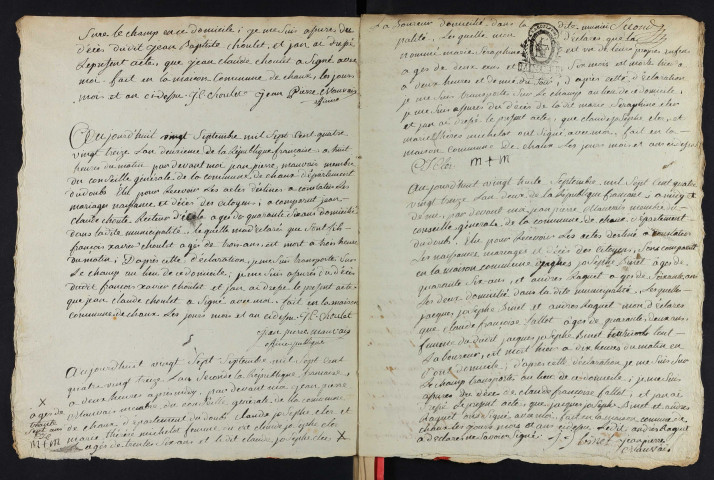 Sur le champ en ce domicile; je me suis assuré du
décès dudit jean Baptiste choulet, et j'an ai drepé
le present acte, que jean claude choulet a Signé avec
moi. fait en la maison Commune de chaux, les jours
moi et an ci desse. J:C: choulet jean Pierre Mauvais
Aujourdhuit vingt Septembre mil Sept Cent quatre
vingt treize L'an deuxieme de la République francaise, a huit
heures du matin par devant moi jean pierre, mauvais membre
du conseille generale de la commune de chaux, département
du doubs Elut pour Recevoir Les actes destines a constater Les
mariages naissance et décès des Citoyens; a comparut jean
claude choulet Recteur d'école ages de quarante
dans ladite municipalité, laquelle m'an declaré que Son fils
françois xavier choulet ages de hon ans, est mort a hon heure
du matin; D'apres cette d'eclaration, je me Suis transporte Sur
Le champ au lieu de ce domicile; je me Suis assurés du décès
dudit françois xavier choulet et j'an ai drepé le present acte
que jean claude choulet a Signé avec moi. fait en la maison
commune de chaux. Les jours mois et an ci desse J:C: choulet
jean pierre mauvais
officier publique
Aujourdhuit vingt Sept Septembre mil Sept Cent
quatre vingt treize L'an Seconde de la République francaise,
a deux heures apresmidi, par devant moi jean pierre
Mauvais membre du conseille generale de la commune
de chaux, departement du doubs claude joseph cler et
marie therese michelet femme
ages de trentes Six ans et le dit claude joseph cler X
X
ages de
trente
Sept ans
M + M
domicilié dans la dite munici
palité. Les quelle mon declares que la
nommé marie Seraphine
ages de deux ans et Six mois est morte hier
a deux heures et demie du Soir; d'apres cette d'eclaration
je me Suis transporte Sur Le champ au lieu de ce domicile,
je me Suis assures du décès de la dite marie Seraphine cler
et j'an ai drepé le present acte, que claude joseph cler, et
marie therese michelet ont Signé avec moi, fait en la
maison commune de chaux Les jours mois et an ci desse
C J Cler M + M
Aujourdhuit vingt huite Septembre, mil Sept Cent quatre
vingt treize L'an deux de la République française,
par devant moi jean pierre Mauvais membre du
conseille generale de la commune de chaux departement
du doubs Elut pour Recevoir Les actes destiné a constater
Les naissances mariages et décès des Citoyens, Sont comparut
en la maison commune jacques joseph Binet ages de
quarante Six ans, et andres Raquet ages de Soixante ans
Les deux domicilié dans la dite municipalité, Lesquelles
jacques joseph Binet et andres Raquet mon d'eclares
que claude françoise fallot ages de quarante deux ans,
femme du dit jacques joseph Binet
Laboureur, est mort hier a dix heures du matin en
Son domicile, d'apres cette déclaration je me Suis Sur
Le champ transporte au lieu de ce domicile, je me Suis
assures du décès de ce claude françoise fallot, et j'an ai
drepé Le present acte que jacques joseph Binet et andres
Raquet ont Signé, avec moi. fait en la maison commune de
chaux Les jours mois et an ci desse Ledit andres Raquet
a declares ne Savoir Signé. J:J: binet jean pierre
Mauvais